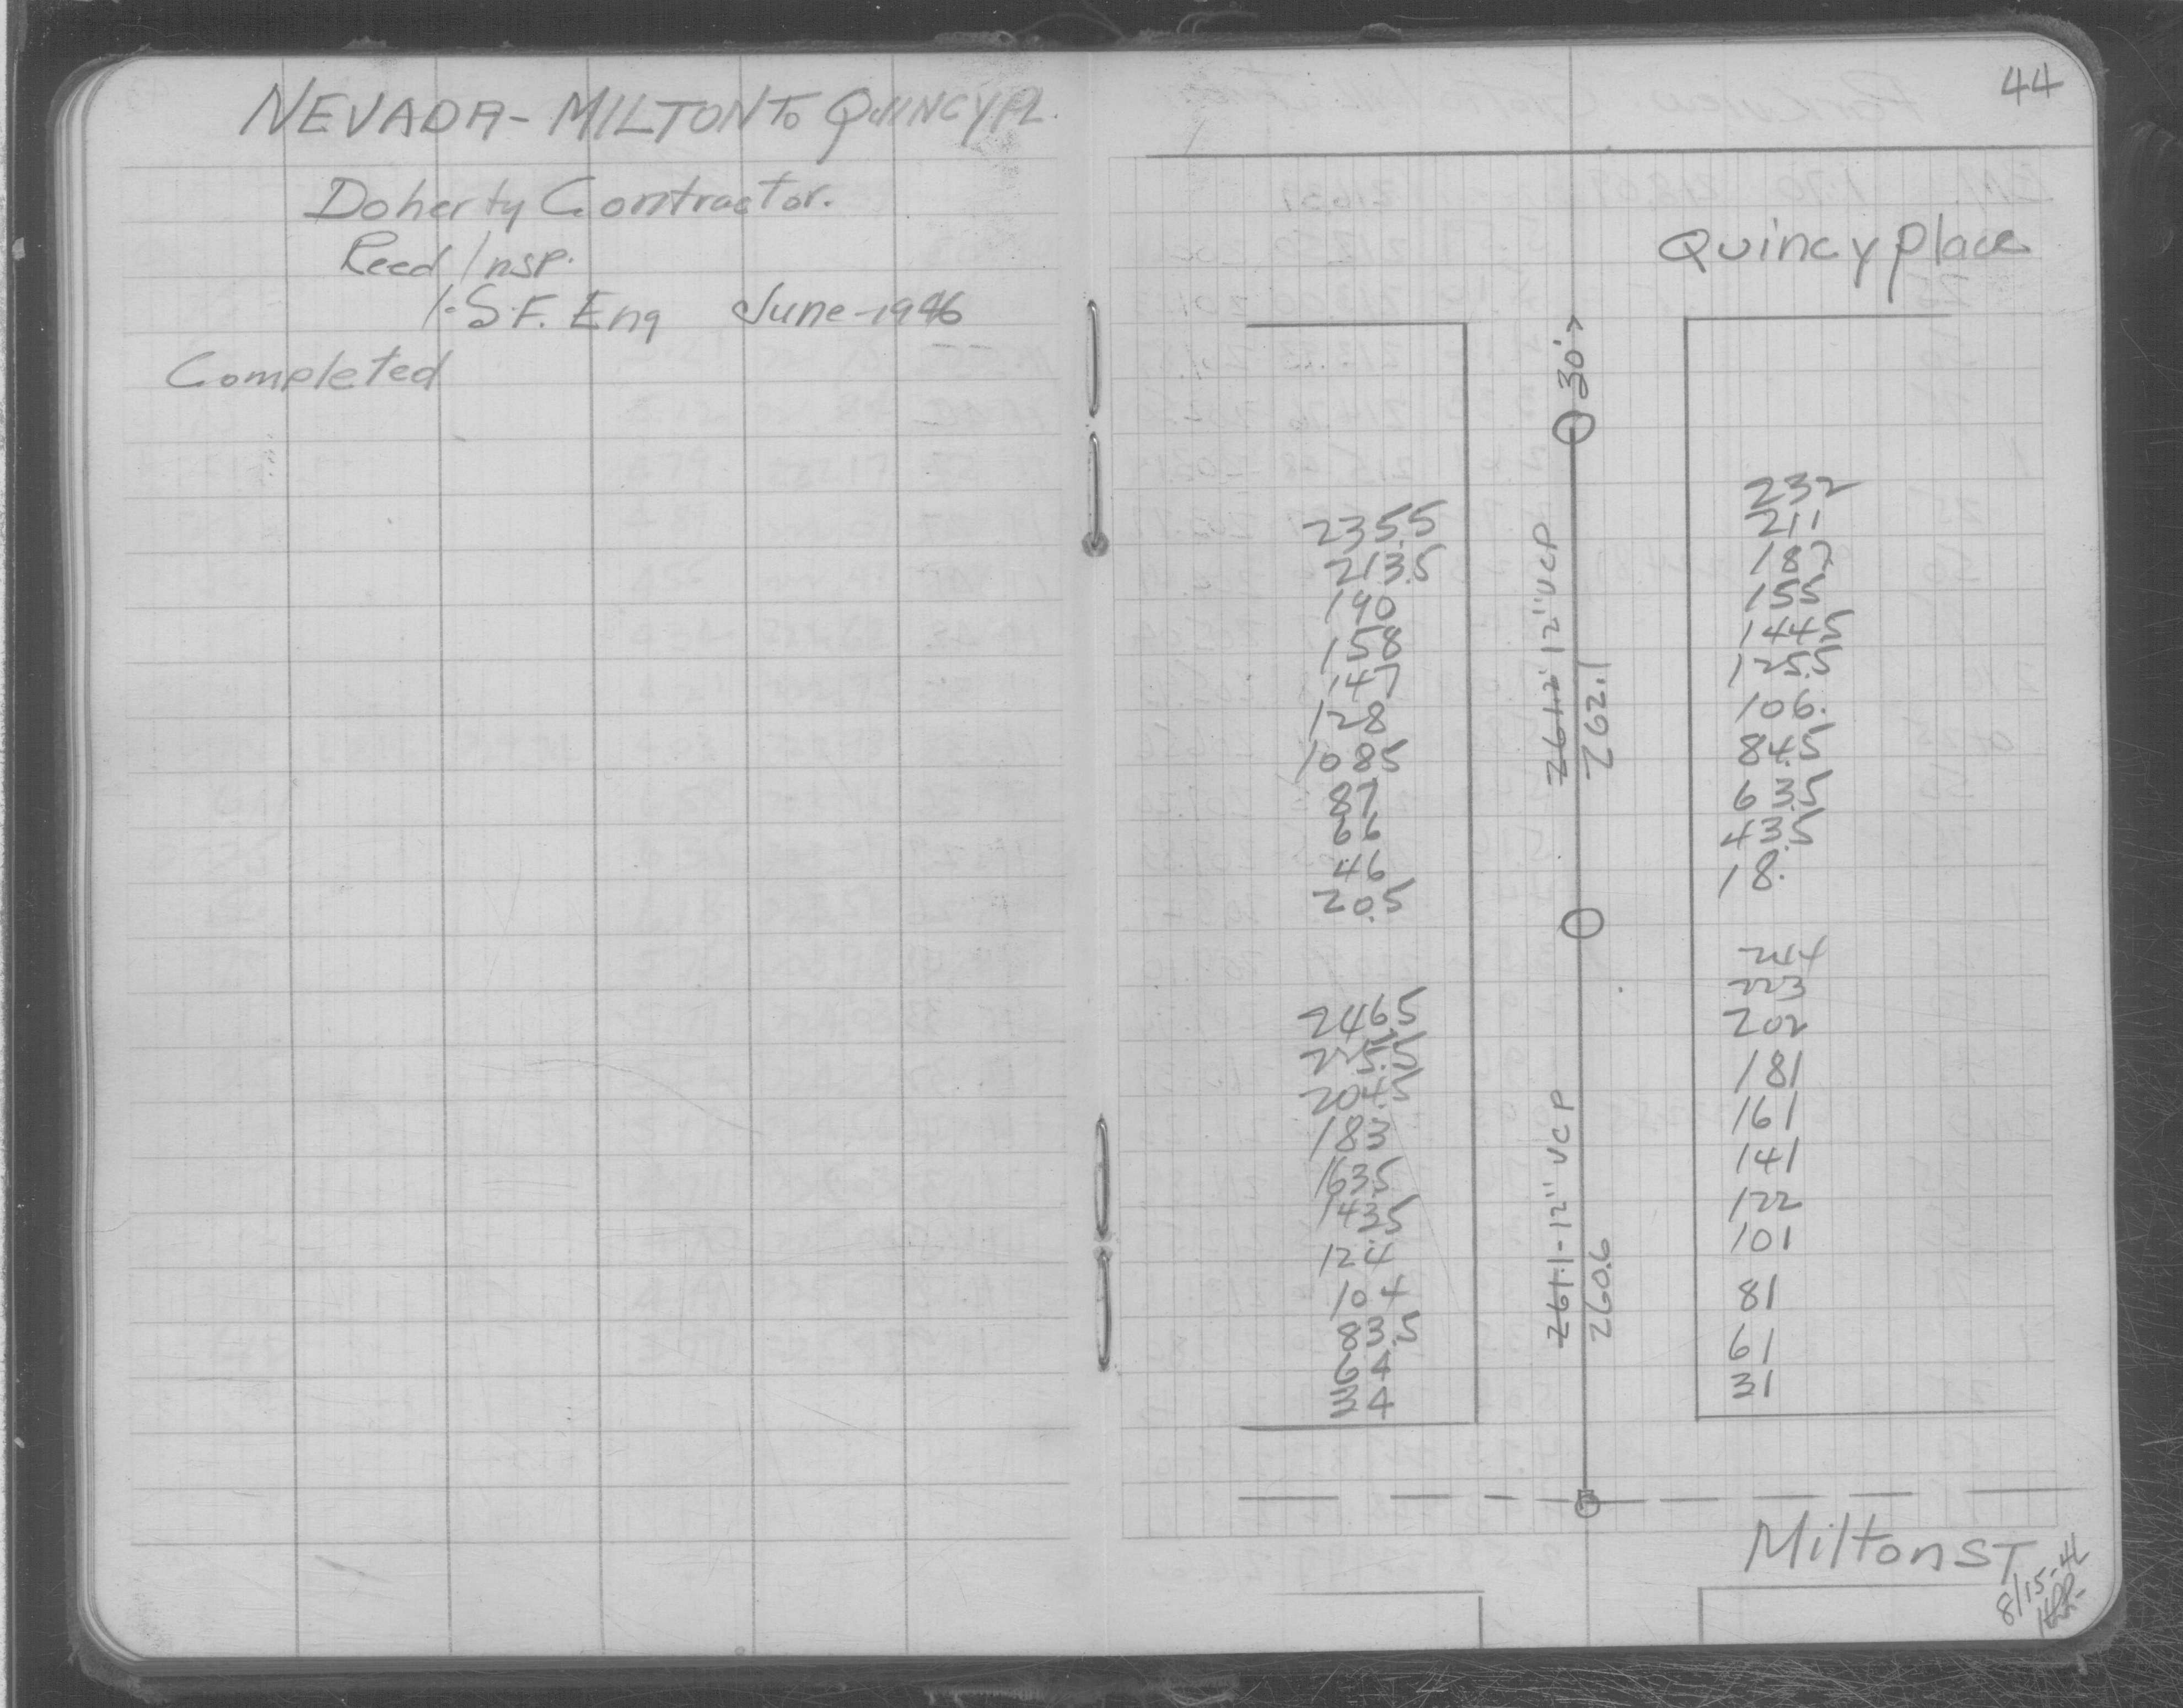 NEVADA - MILTON To QUINCY PL.
Doherty Contractor.
Reed Insp.
I.S.F. Eng June-1946
Completed
44
Quincy place
30'
235.5
213.5
190
158
147
128
108.5
87
66
46
20.5
246.5
225.5
204.5
183
163.5
143.5
124
104
83.5
64
34
261.2 12" VCP
262.1
261.1 - 12" VCP
260.6
232
211
187
155
144.5
125.5
106.
84.5
63.5
43.5
18.
244
223
202
181
161
141
122
101
81
61
31
Milton ST
8/15-46